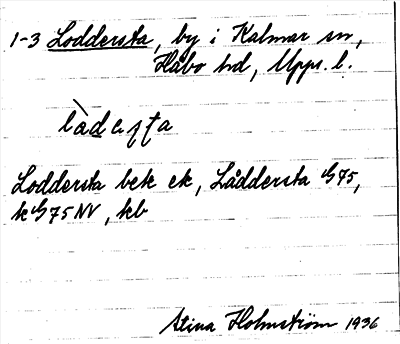 1-3 Loddersta, by i Kalmar sn,
Håbo hd, Upps. l.
Loddersta bek ek, Låddersta G75,
k G75 NV, kb
Stina Holmström 1936